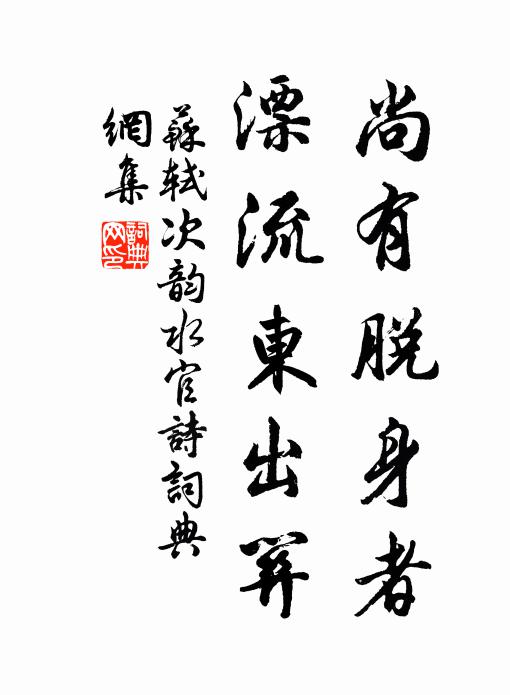 尚有脱身者
漂流東出關
蘇軾次韵水官詩詞典
網集
詞典
网印